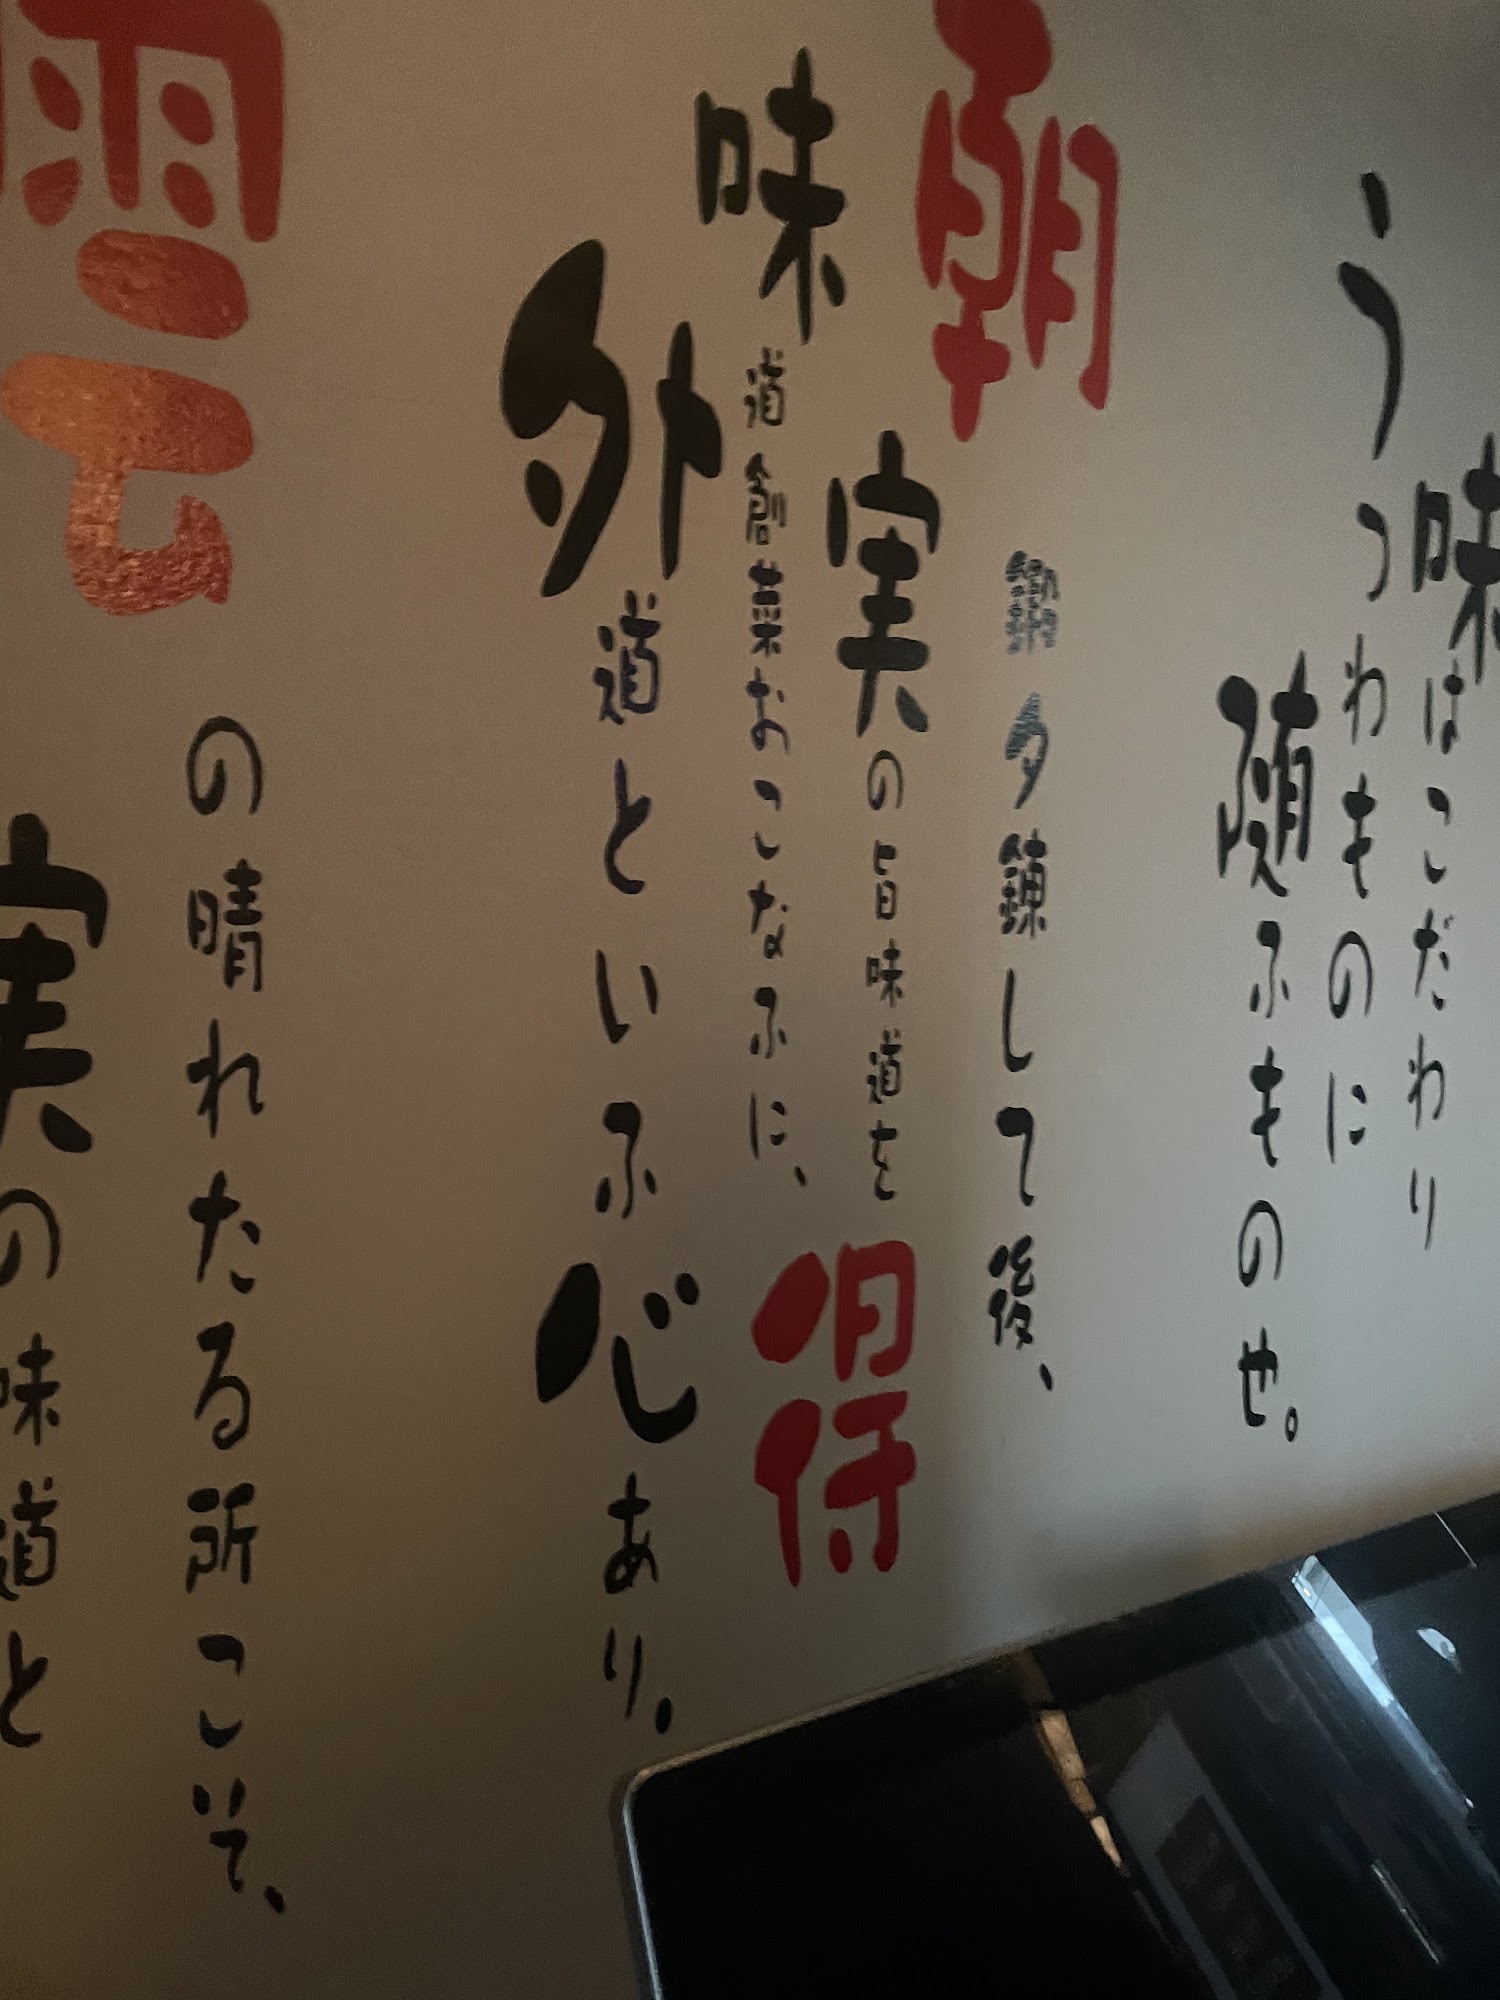 味はこだわり
うつわものに
随ふものや。
朝鍛夕錬して後、
実の旨味道を得
味道創菜おこなふに、
外道といふ心あり。
雲の晴れたる所こそ、
実の味道と